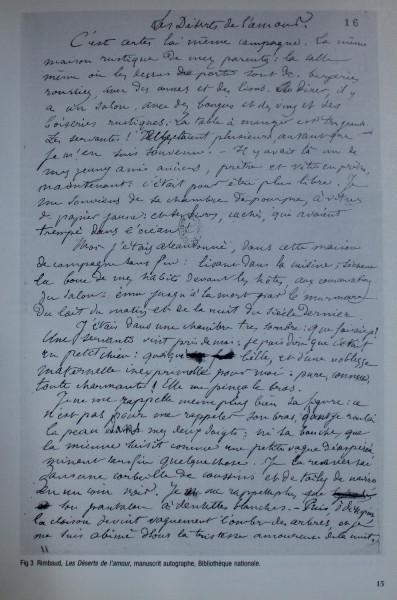 Les Déserts de l'amour.
16
C'est certes la même campagne. La même
maison rustique de mes parents : la salle
même où les dessus de portes sont des bergeries
roussies, avec des armes et des lions. Au dîner, il y
a un salon, avec des bougies et des vins et des
boiseries rustiques. La table à manger est très grande.
Les servantes ! Elles étaient plusieurs, autant que
je m'en suis souvenu. – Il y avait là un de
mes jeunes amis anciens, prêtre et vêtu en prêtre,
maintenant : c'était pour être plus libre. Je
me souviens de sa chambre de pourpre, à vitres
de papier jaune : et ses livres, cachés, qui avaient
trempé dans l'océan !
Moi j'étais abandonné, dans cette maison
de campagne sans fin : lisant dans la cuisine, séchant
la boue de mes habits devant les hôtes, aux conversations
du salon : ému jusqu'à la mort par le murmure
du lait du matin et de la nuit du siècle dernier.
J'étais dans une chambre très sombre : que faisais-je ?
Une servante vint près de moi : je puis dire que c'était
un petit chien : quoique belle, et d'une noblesse
maternelle inexprimable pour moi : pure, connue,
toute charmante ! Elle me pinça le bras.
Je ne me rappelle même plus bien sa figure : ce
n'est pas pour me rappeler son bras, dont je roulai
la peau dans mes deux doigts ; ni sa bouche, que
la mienne saisit comme une petite vague désespérée,
minant sans fin quelque chose. Je la renversai
dans une corbeille de coussins et de toiles de navire
en un coin noir. Je ne me rappelle plus que
son pantalon à dentelles blanches. – Puis, ô désespoir,
la cloison devint vaguement l'ombre des arbres, et je
me suis abîmé sous la tristesse amoureuse de la nuit.
Fig 3 Rimbaud, Les Déserts de l'amour, manuscrit autographe, Bibliothèque nationale.
15